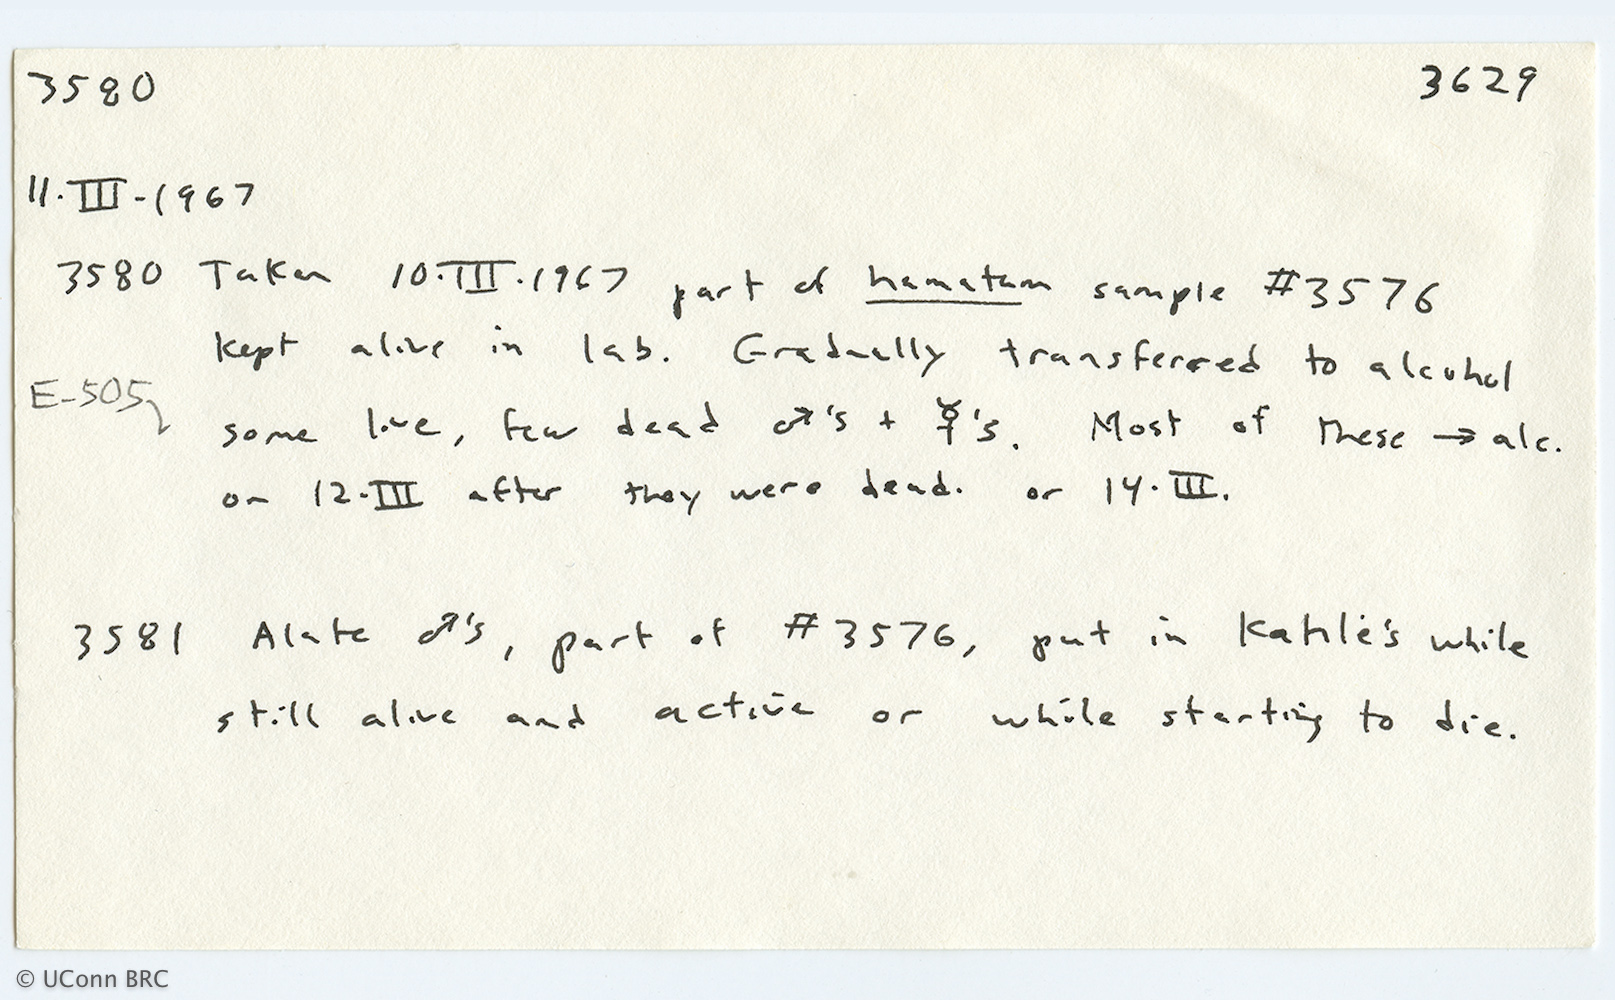 3580 3629
11·III-1967
3580 Taken 10·III·1967 part of hamatum sample #3576
kept alive in lab. Gradually transferred to alcohol
E-505
some live, few dead ♂'s + ☿'s. Most of these → alc.
on 12·III after they were dead. or 14·III.
3581 Alate ♂'s, part of #3576, put in Kahle's while
still alive and active or while starting to die.
© UConn BRC